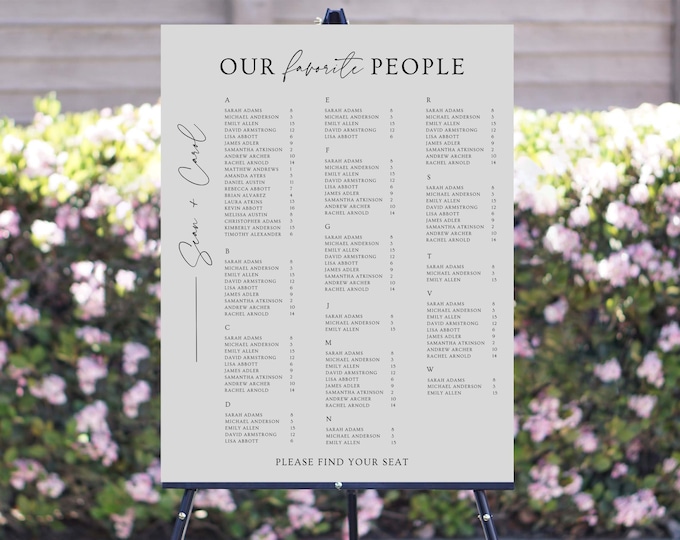 OUR favorite PEOPLE
Sean + Carol
A
SARAH ADAMS 8
MICHAEL ANDERSON 3
EMILY ALLEN 15
DAVID ARMSTRONG 12
LISA ABBOTT 6
JAMES ADLER 9
SAMANTHA ATKINSON 2
ANDREW ARCHER 10
RACHEL ARNOLD 14
MATTHEW ANDREWS 1
AMANDA AYERS 5
DANIEL AUSTIN 11
REBECCA ABBOTT 7
BRIAN ALVAREZ 4
LAURA ATKINS 13
KEVIN ABBOTT 16
MELISSA AUSTIN 8
CHRISTOPHER ADAMS 3
KIMBERLY ANDERSON 15
TIMOTHY ALEXANDER 6
B
SARAH ADAMS 8
MICHAEL ANDERSON 3
EMILY ALLEN 15
DAVID ARMSTRONG 12
LISA ABBOTT 6
JAMES ADLER 9
SAMANTHA ATKINSON 2
ANDREW ARCHER 10
RACHEL ARNOLD 14
C
SARAH ADAMS 8
MICHAEL ANDERSON 3
EMILY ALLEN 15
DAVID ARMSTRONG 12
LISA ABBOTT 6
JAMES ADLER 9
SAMANTHA ATKINSON 2
ANDREW ARCHER 10
RACHEL ARNOLD 14
D
SARAH ADAMS 8
MICHAEL ANDERSON 3
EMILY ALLEN 15
DAVID ARMSTRONG 12
LISA ABBOTT 6
E
SARAH ADAMS 8
MICHAEL ANDERSON 3
EMILY ALLEN 15
DAVID ARMSTRONG 12
LISA ABBOTT 6
F
SARAH ADAMS 8
MICHAEL ANDERSON 3
EMILY ALLEN 15
DAVID ARMSTRONG 12
LISA ABBOTT 6
JAMES ADLER 9
SAMANTHA ATKINSON 2
ANDREW ARCHER 10
RACHEL ARNOLD 14
G
SARAH ADAMS 8
MICHAEL ANDERSON 3
EMILY ALLEN 15
DAVID ARMSTRONG 12
LISA ABBOTT 6
JAMES ADLER 9
SAMANTHA ATKINSON 2
ANDREW ARCHER 10
RACHEL ARNOLD 14
J
SARAH ADAMS 8
MICHAEL ANDERSON 3
M
SARAH ADAMS 8
MICHAEL ANDERSON 3
EMILY ALLEN 15
DAVID ARMSTRONG 12
LISA ABBOTT 6
JAMES ADLER 9
SAMANTHA ATKINSON 2
ANDREW ARCHER 10
RACHEL ARNOLD 14
N
SARAH ADAMS 8
MICHAEL ANDERSON 3
EMILY ALLEN 15
R
SARAH ADAMS 8
MICHAEL ANDERSON 3
EMILY ALLEN 15
DAVID ARMSTRONG 12
LISA ABBOTT 6
JAMES ADLER 9
SAMANTHA ATKINSON 2
ANDREW ARCHER 10
RACHEL ARNOLD 14
S
SARAH ADAMS 8
MICHAEL ANDERSON 3
EMILY ALLEN 15
DAVID ARMSTRONG 12
LISA ABBOTT 6
JAMES ADLER 9
SAMANTHA ATKINSON 2
ANDREW ARCHER 10
RACHEL ARNOLD 14
T
SARAH ADAMS 8
MICHAEL ANDERSON 3
V
SARAH ADAMS 8
MICHAEL ANDERSON 3
EMILY ALLEN 15
DAVID ARMSTRONG 12
LISA ABBOTT 6
JAMES ADLER 9
SAMANTHA ATKINSON 2
ANDREW ARCHER 10
RACHEL ARNOLD 14
W
SARAH ADAMS 8
MICHAEL ANDERSON 3
EMILY ALLEN 15
PLEASE FIND YOUR SEAT